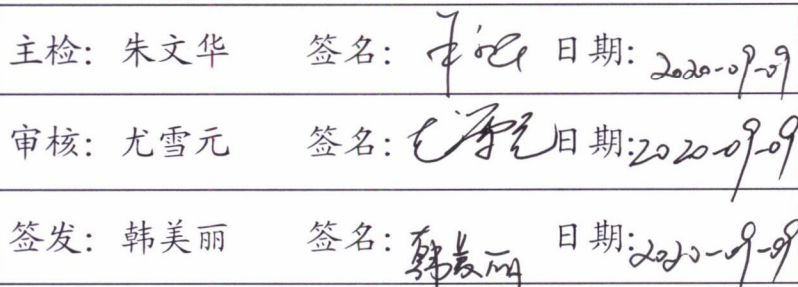 主检：朱文华 签名： 日期：2020-09-09
审核：尤雪元 签名：尤雪元 日期：2020-09-09
签发：韩美丽 签名：韩美丽 日期：2020-09-09